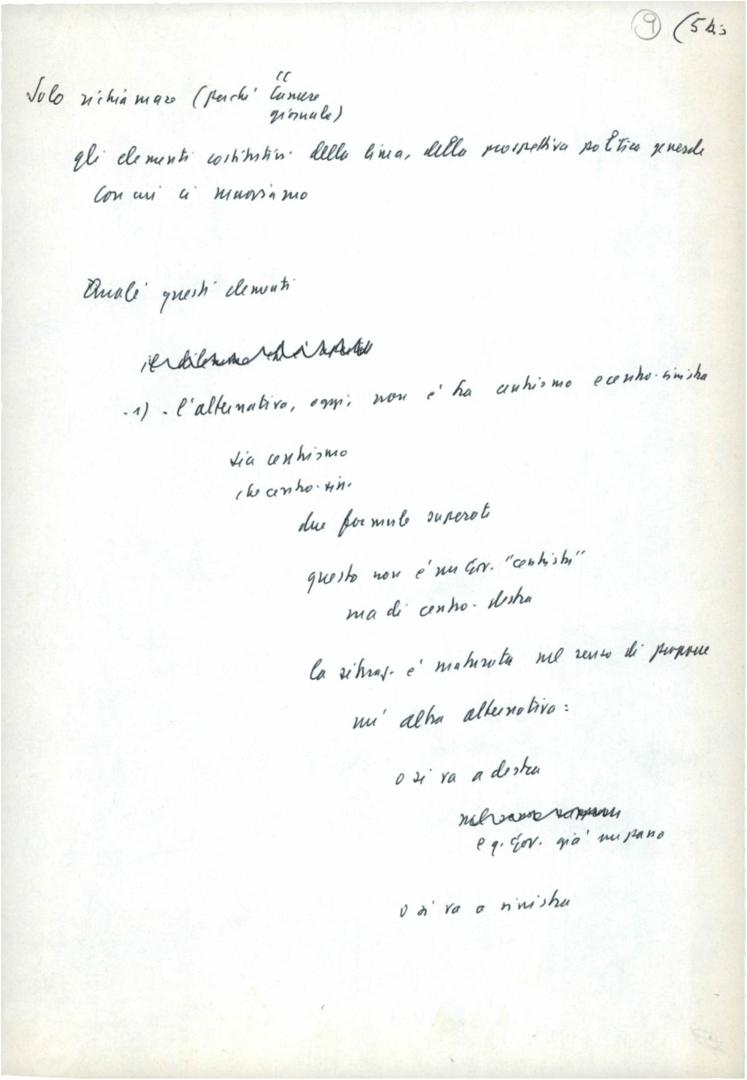 9 (5 bis
Solo richiamare (perché "
l'amore
giornale)
gli elementi costitutivi della linea, della prospettiva politica generale
con cui ci muoviamo
Quali questi elementi
-1) - l'alternativa, oggi, non è tra centrismo e centro-sinistra
sia centrismo
che centro-sin.
due formule superate
questo non è un Gov. "centrista"
ma di centro-destra
la situaz. è maturata nel senso di proporre
un'altra alternativa:
o si va a destra
e q. Gov. già un passo
o si va a sinistra